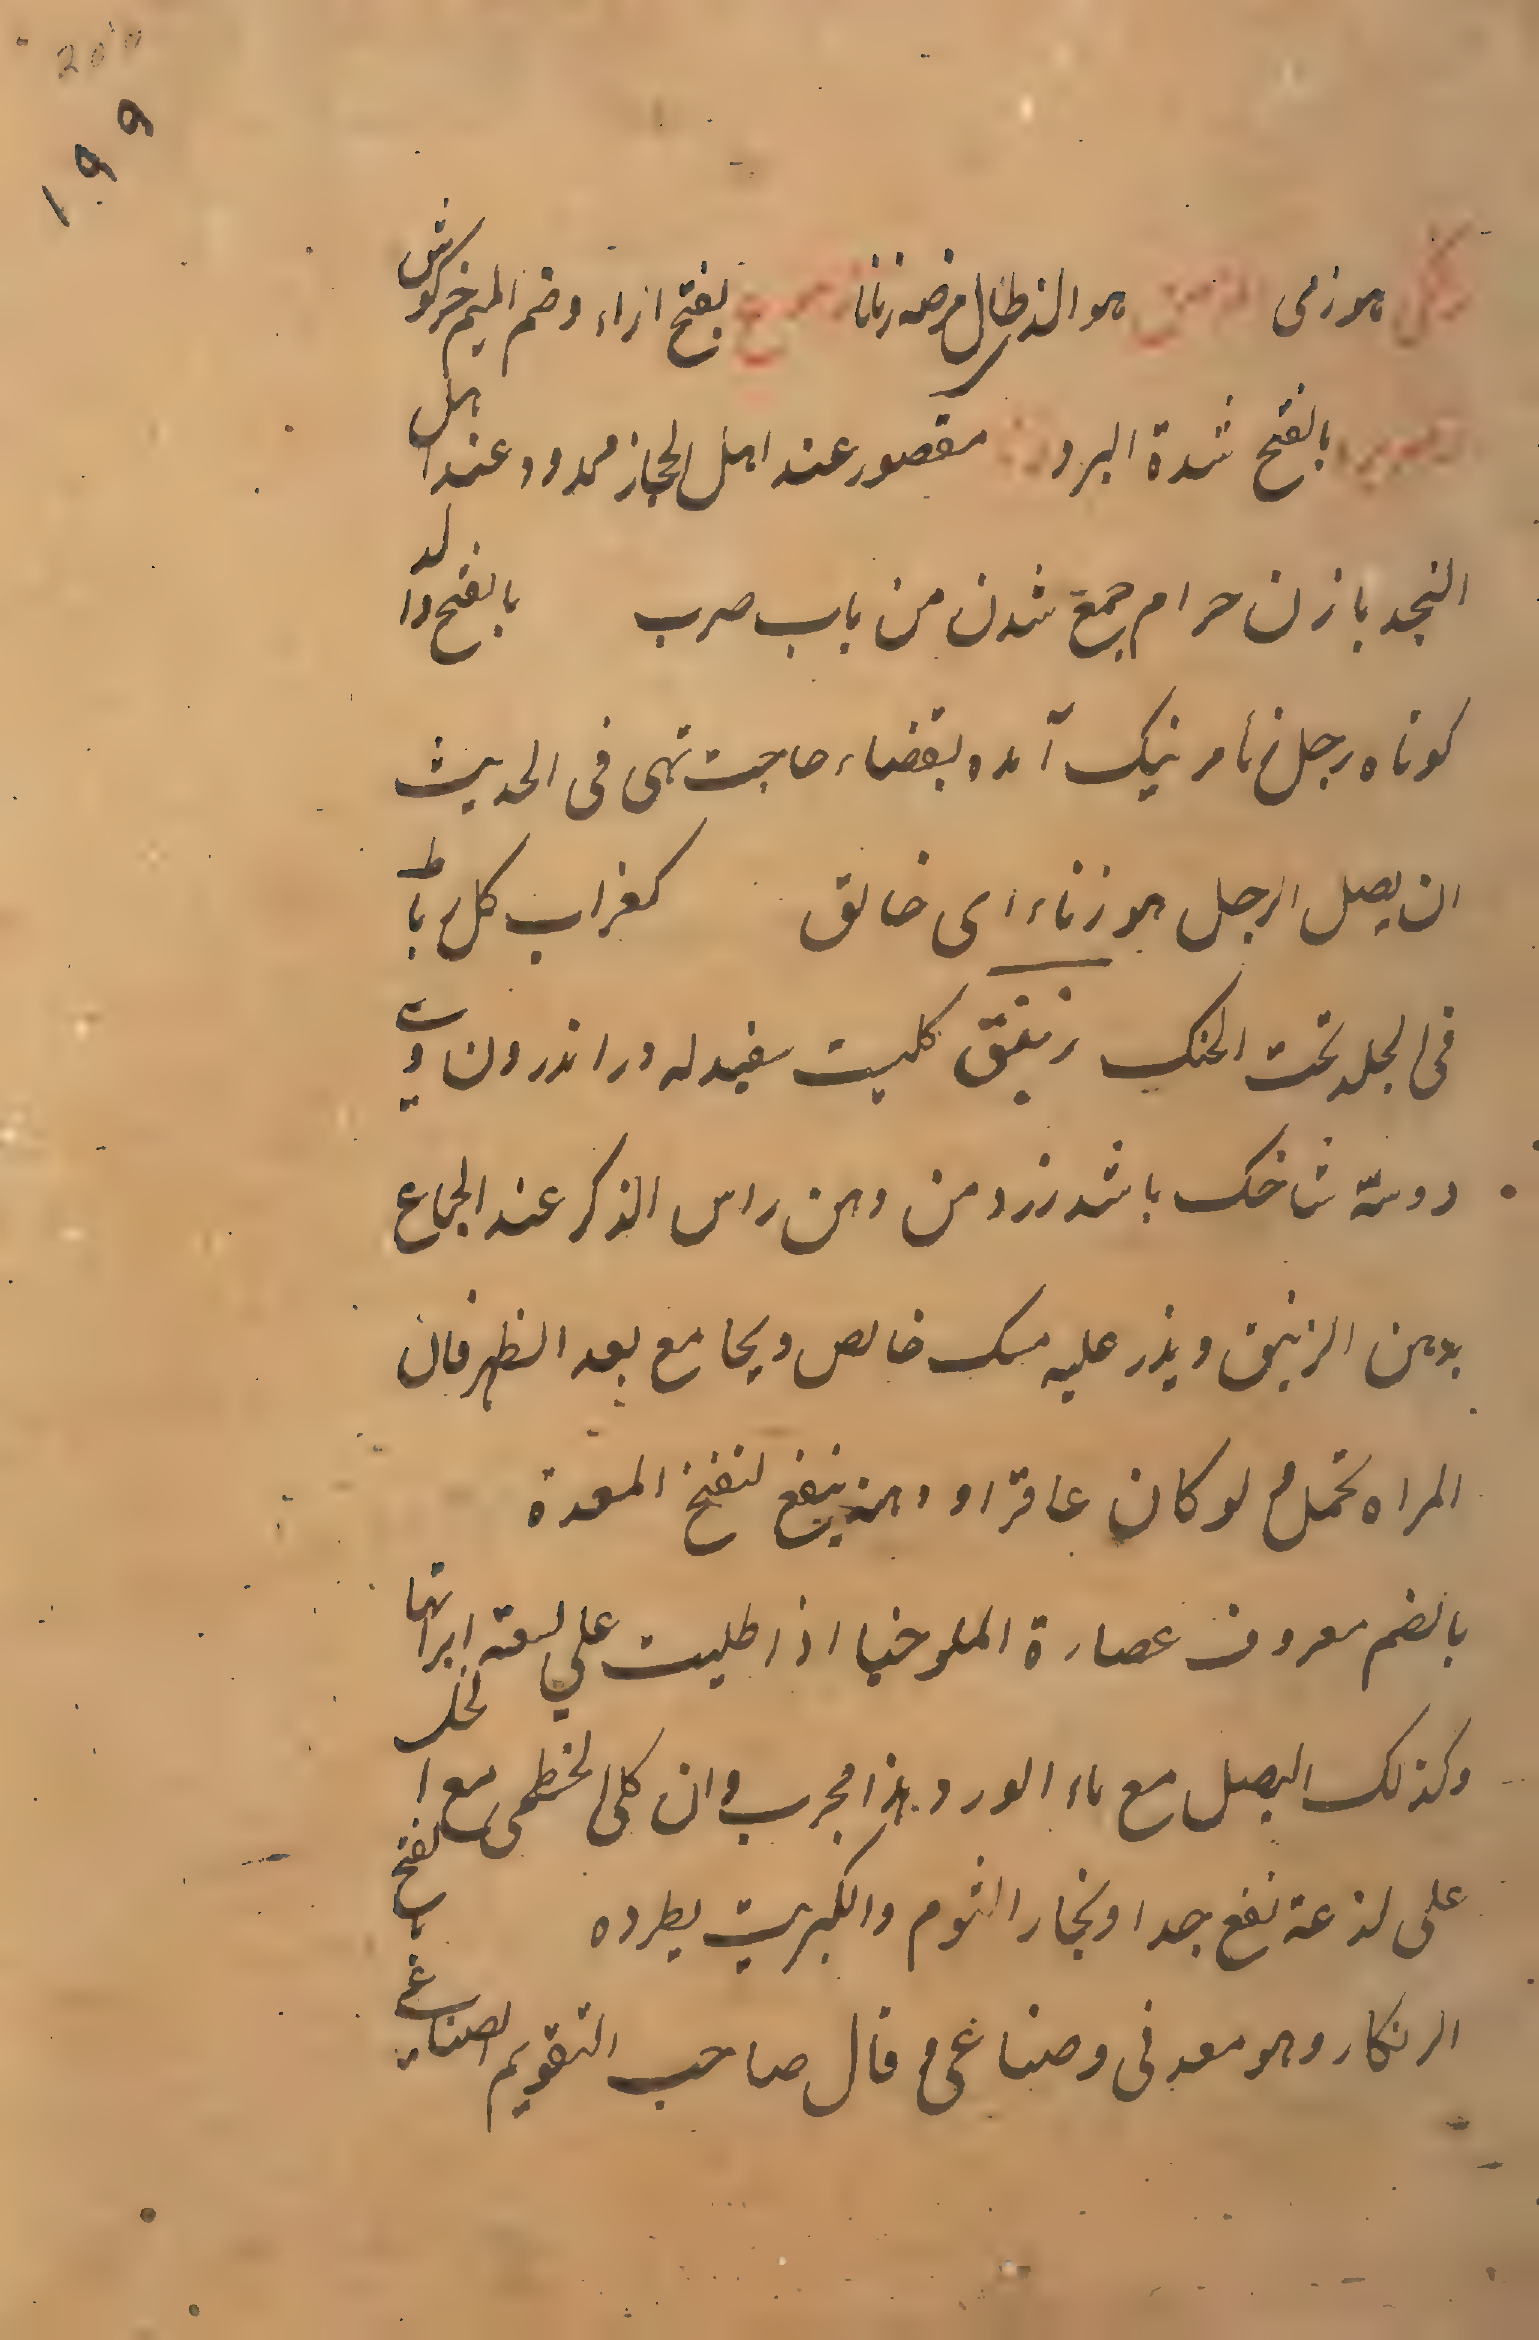 200
۱۹۹
زنجی هو زمی الزمن هو الذ طال مرضه زمانا بفتح ازاء وضم المیم خرکوش
بالفتح شدة البرد مقصور عند اهل الحجاز ممدود عند اهل
النجد با زن حرام جمع شدن من باب ضرب بالفتح والمد
کوتاه رجل زنا مرنیک آمده بقضاء حاجت نهی فی الحدیث
ان یصل الرجل هو زناء ای خالق کغراب کل رباط
فی الجلد تحت الحنک زنبق کلیست سفید له در اندرون وی
دوسته شاخک باشد زرد من دهن راس الذکر عند الجماع
بدهن الزنبق ویذر علیه مسک خالص ویجامع بعد الطهر فان
المراه تحمل ولو کان عاقرا ودهنه ینفع لنفخ المعدة
بالضم معروف عصارة الملوخیا اذا طلیت علی لسعته ابراتها
وکذلک البصل مع ماء الورد هذا مجرب وان کلی الخطمی مع الخل
علی لذعة نفع جدا وبخار الثوم والکبریت یطرده بفتح
الزنکار وهو معدنی وصناغی و قال صاحب التقویم الصناعی